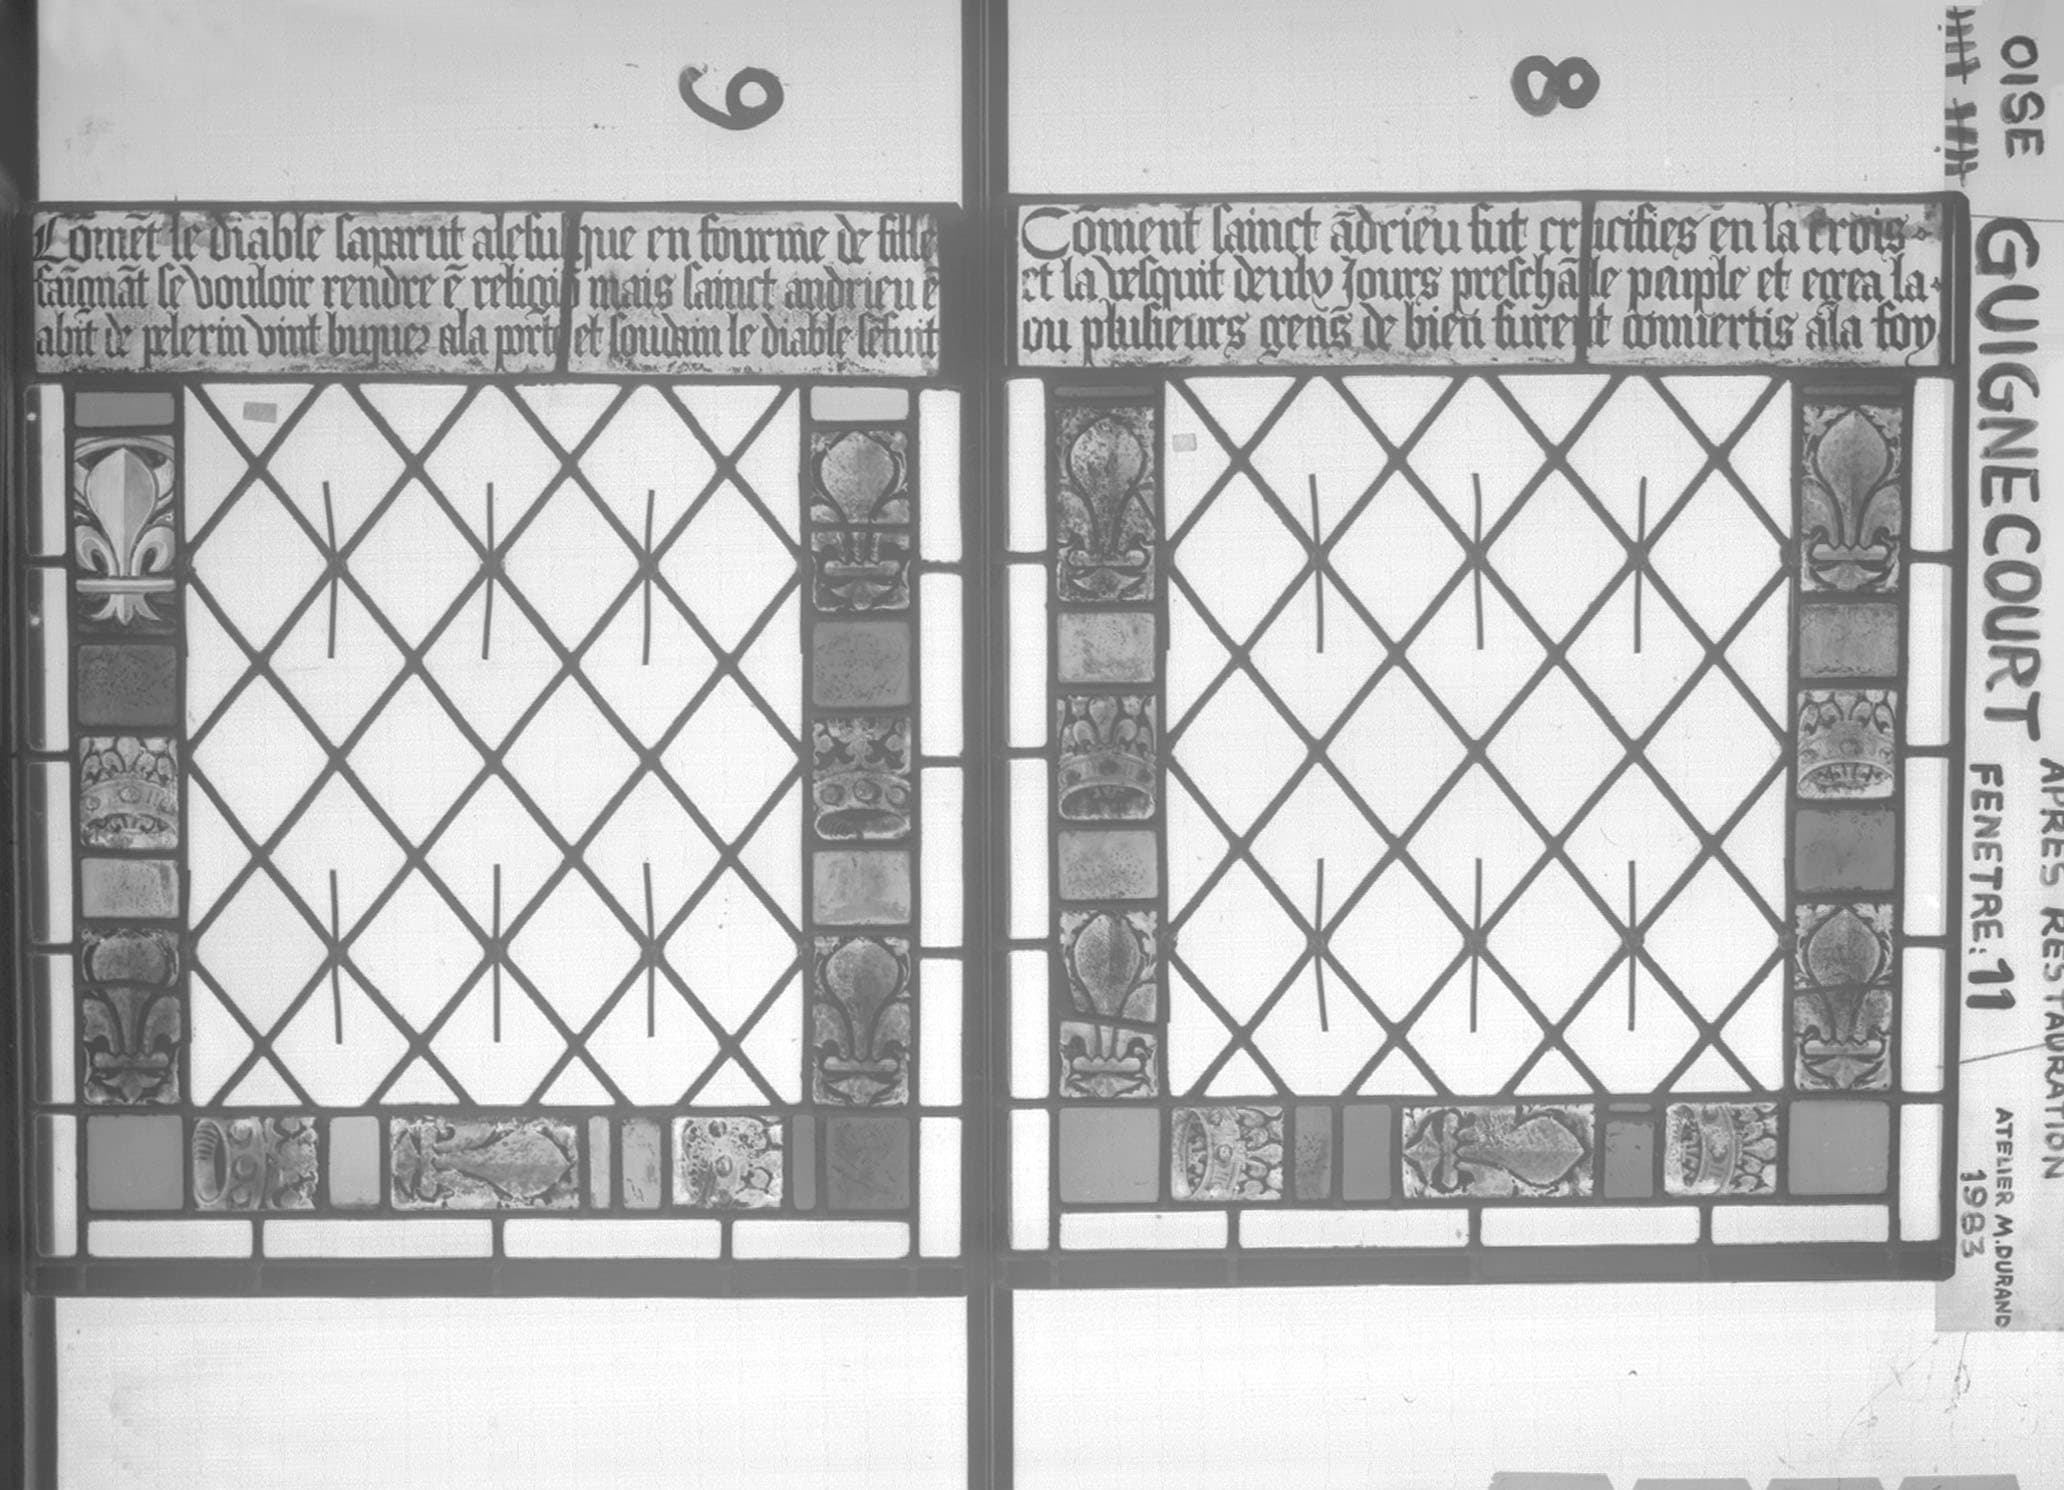 9
Com̄ēt le diable saparut alesuesque en fourme de fille
faīgnāt se vouloir rendre ē religiō mais sainct andrieu ē
abit de pelerin vint buquer ala porte et soudain le diable sēfuit
8
Cōment sainct ādrieu fut crucifies en la crois
et la vesquit deulx Jours preschāt le peuple et cria la
ou plusieurs gens de bien furent conuertis a la foy
OISE
GUIGNECOURT
APRES RESTAURATION
FENETRE: 11
ATELIER M.DURAND
1983